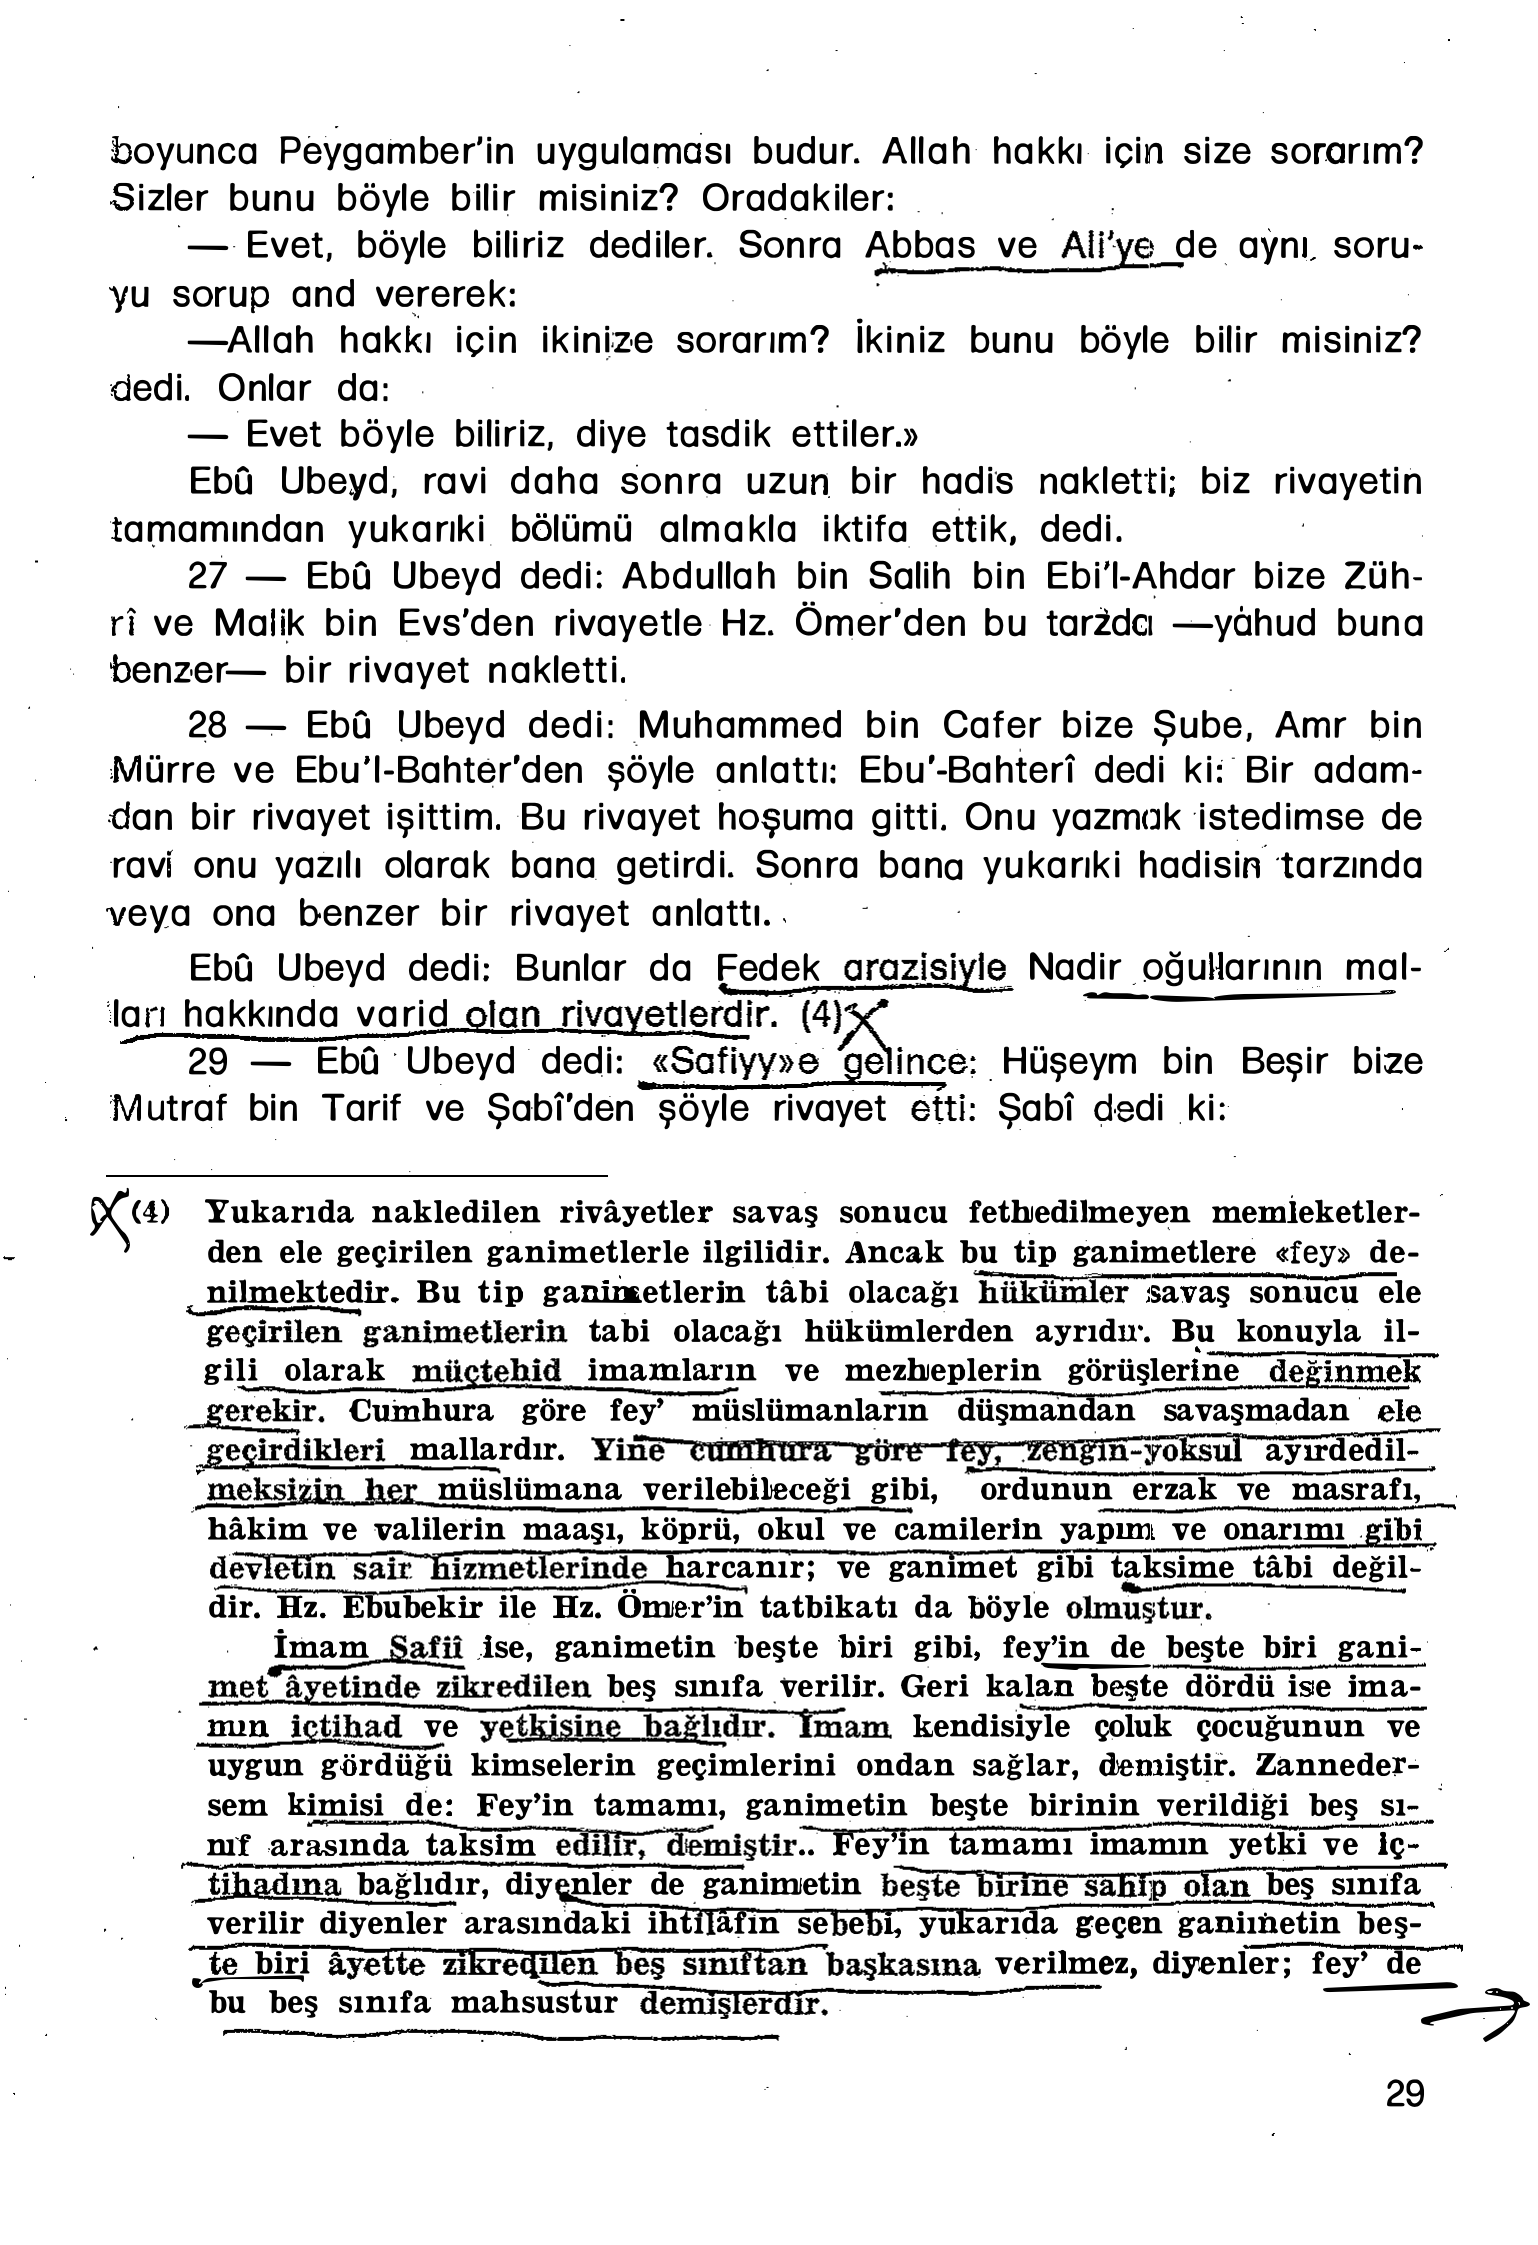 boyunca Peygamber'in uygulaması budur. Allah hakkı için size sorarım?
Sizler bunu böyle bilir misiniz? Oradakiler:
— Evet, böyle biliriz dediler. Sonra Abbas ve Ali'ye de aynı soru-
yu sorup and vererek:
—Allah hakkı için ikinize sorarım? İkiniz bunu böyle bilir misiniz?
dedi. Onlar da:
— Evet böyle biliriz, diye tasdik ettiler.»
Ebû Ubeyd, ravi daha sonra uzun bir hadis nakletti; biz rivayetin
tamamından yukarıki bölümü almakla iktifa ettik, dedi.
27 — Ebû Ubeyd dedi: Abdullah bin Salih bin Ebi'l-Ahdar bize Züh-
rî ve Malik bin Evs'den rivayetle Hz. Ömer'den bu tarzda —yahud buna
benzer— bir rivayet nakletti.
28 — Ebû Ubeyd dedi: Muhammed bin Cafer bize Şube, Amr bin
Mürre ve Ebu'l-Bahter'den şöyle anlattı: Ebu'-Bahterî dedi ki: Bir adam-
dan bir rivayet işittim. Bu rivayet hoşuma gitti. Onu yazmak istedimse de
ravi onu yazılı olarak bana getirdi. Sonra bana yukarıki hadisin tarzında
veya ona benzer bir rivayet anlattı.
Ebû Ubeyd dedi: Bunlar da Fedek arazisiyle Nadir oğullarının mal-
ları hakkında varid olan rivayetlerdir. (4)
29 — Ebû Ubeyd dedi: «Safiyy»e gelince: Hüşeym bin Beşir bize
Mutraf bin Tarif ve Şabî'den şöyle rivayet etti: Şabî dedi ki:
(4) Yukarıda nakledilen rivâyetler savaş sonucu fethedilmeyen memleketler-
den ele geçirilen ganimetlerle ilgilidir. Ancak bu tip ganimetlere «fey» de-
nilmektedir. Bu tip ganimetlerin tâbi olacağı hükümler savaş sonucu ele
geçirilen ganimetlerin tabi olacağı hükümlerden ayrıdır. Bu konuyla il-
gili olarak müçtehid imamların ve mezheplerin görüşlerine değinmek
gerekir. Cumhura göre fey' müslümanların düşmandan savaşmadan ele
geçirdikleri mallardır. Yine cumhura göre fey, zengin-yoksul ayırdedil-
meksizin her müslümana verilebileceği gibi, ordunun erzak ve masrafı,
hâkim ve valilerin maaşı, köprü, okul ve camilerin yapımı ve onarımı gibi
devletin sair hizmetlerinde harcanır; ve ganimet gibi taksime tâbi değil-
dir. Hz. Ebubekir ile Hz. Ömer'in tatbikatı da böyle olmuştur.
İmam Şafiî ise, ganimetin beşte biri gibi, fey'in de beşte biri gani-
met âyetinde zikredilen beş sınıfa verilir. Geri kalan beşte dördü ise ima-
mın içtihad ve yetkisine bağlıdır. İmam kendisiyle çoluk çocuğunun ve
uygun gördüğü kimselerin geçimlerini ondan sağlar, demiştir. Zanneder-
sem kimisi de: Fey'in tamamı, ganimetin beşte birinin verildiği beş sı-
nıf arasında taksim edilir, demiştir.. Fey'in tamamı imamın yetki ve iç-
tihadına bağlıdır, diyenler de ganimetin beşte birine sahip olan beş sınıfa
verilir diyenler arasındaki ihtilâfın sebebi, yukarıda geçen ganimetin beş-
te biri âyette zikredilen beş sınıftan başkasına verilmez, diyenler; fey' de
bu beş sınıfa mahsustur demişlerdir.
29